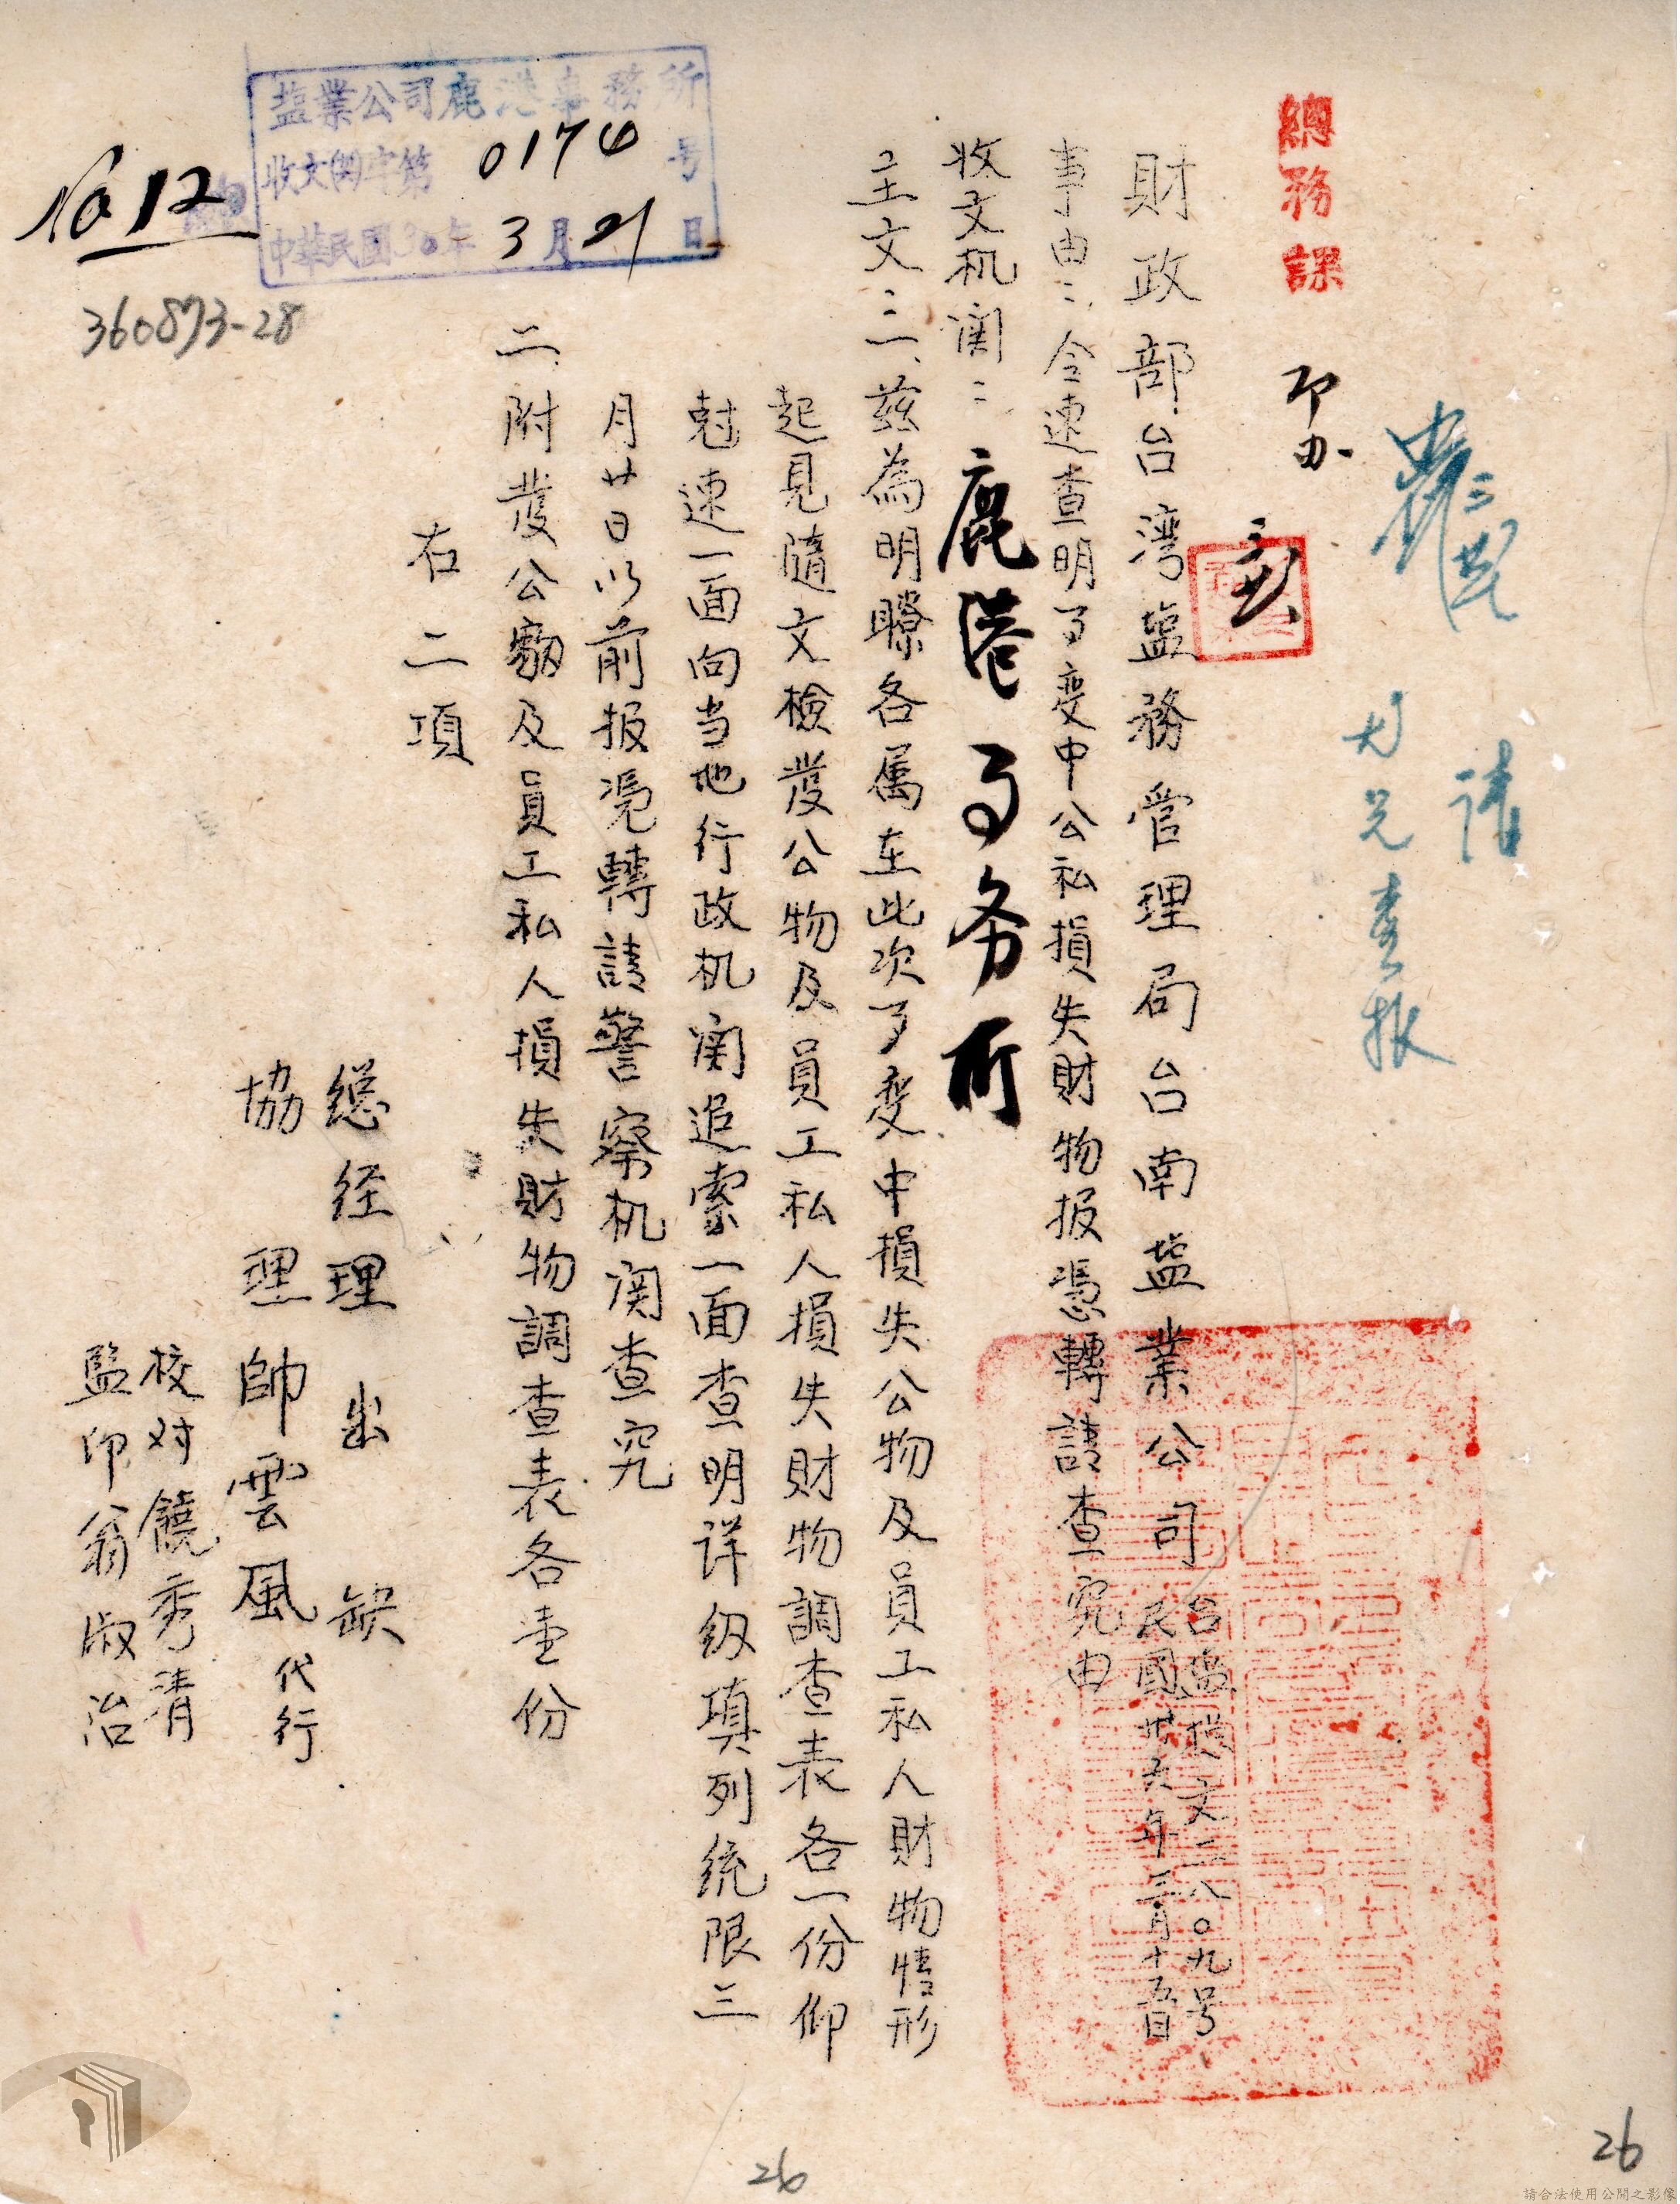 總務課
即办
請
尤兄查报
財政部台湾盐務管理局台南盐業公司
台南撥文二八〇九号
民國卅六年三月十五日
事由：令速查明了変中公私損失財物报憑轉請查究由
收文机関：鹿港了务所
主文：一、茲為明瞭各属在此次了変中損失公物及員工私人財物情形
起見隨文檢發公物及員工私人損失財物調查表各一份仰
尅速一面向当地行政机関追索一面查明详细填列統限三
月廿日以前报憑轉請警察机関查究
二、附發公物及員工私人損失財物調查表各壹份
右二項
總经理 出缺
協理 帥雲風代行
校对饒秀清
監印翁淑治
盐業公司鹿港事務所
收文(関)字第0174号
中華民國36年3月21日
No 12
360873-28
26
26
請合法使用公開之影像